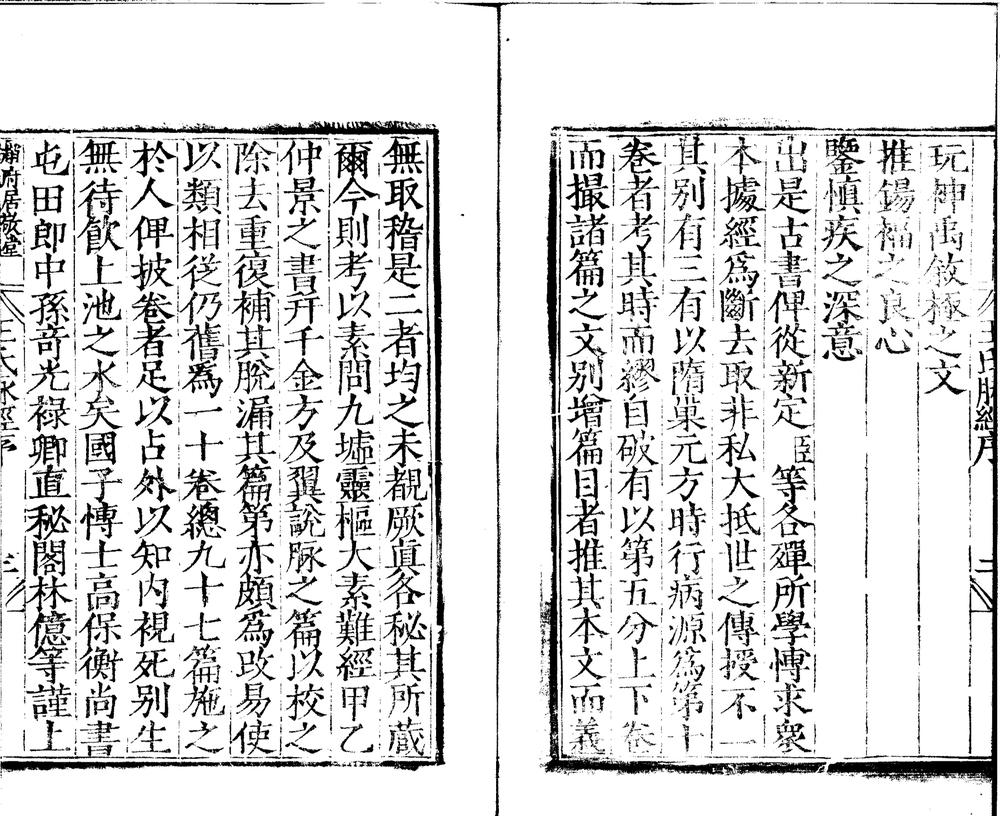 王氏脉經序
二
玩神禹敘極之文
推錫福之良心
鑒慎疾之深意
出是古書俾從新定 臣 等各殫所學博求衆
本據經爲斷去取非私大抵世之傳授不一
其别有三有以隋巢元方時行病源爲第十
卷者考其時而繆自破有以第五分上下卷
而撮諸篇之文别增篇目者推其本文而義
無取稽是二者均之未覩厥真各秘其所蔵
爾今則考以素問九墟靈樞太素難經甲乙
仲景之書并千金方及翼說脉之篇以校之
除去重復補其脫漏其篇第亦頗爲改易使
以類相從仍舊爲一十卷總九十七篇施之
於人俾披卷者足以占外以知内視死别生
無待飲上池之水矣國子博士高保衡尚書
屯田郎中孫竒光禄卿直秘閣林億等謹上
府居敬堂
王氏脉經序
三